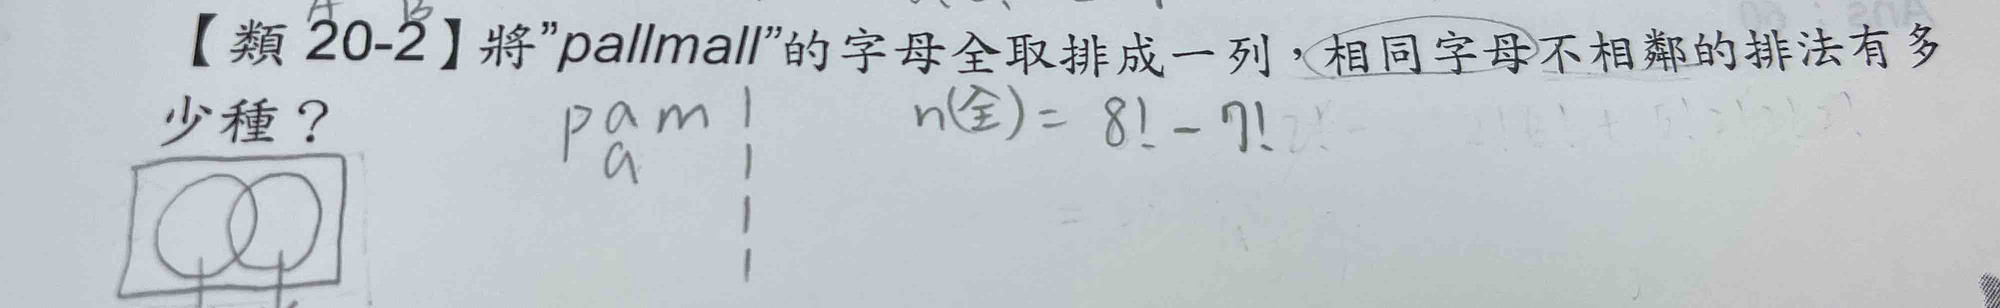 A B
【類 20-2】將”pallmall”的字母全取排成一列，相同字母不相鄰的排法有多
少種？
p a m l n(全) = 8! - 7!
a l
l
l